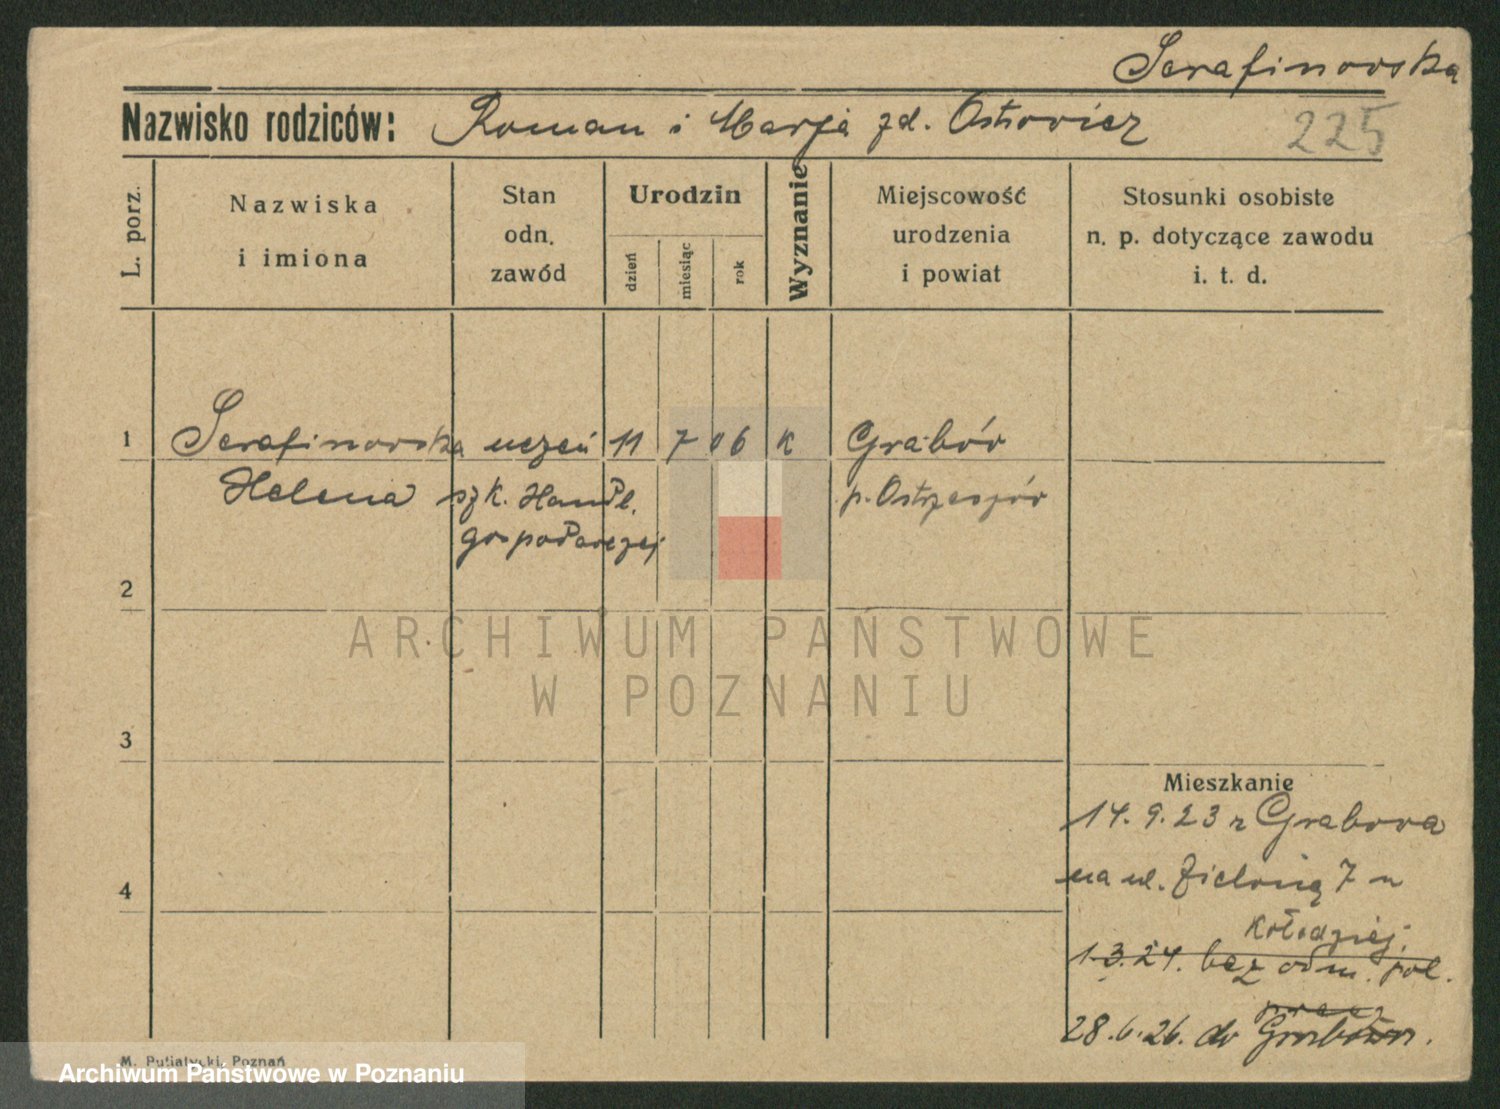 Serafinowska
Nazwisko rodziców: Roman i Marja zd. Ostrowicz
225
L. porz.
Nazwiska
i imiona
Stan
odn.
zawód
Urodzin
dzień
miesiąc
rok
Wyznanie
Miejscowość
urodzenia
i powiat
Stosunki osobiste
n. p. dotyczące zawodu
i. t. d.
1 Serafinowska uczeń 11 7 06 K Grabów
Helena szk. Handl. p. Ostrzeszów
gospodarczej
2
ARCHIWUM PAŃSTWOWE
W POZNANIU
3
Mieszkanie
14. 9. 23 z Grabowa
4
na ul. Zieloną 7 u
Kołodziej.
1. 3. 24. bez odm. pol.
28. 6. 26. do
M. Putiatycki, Poznań
Archiwum Państwowe w Poznaniu